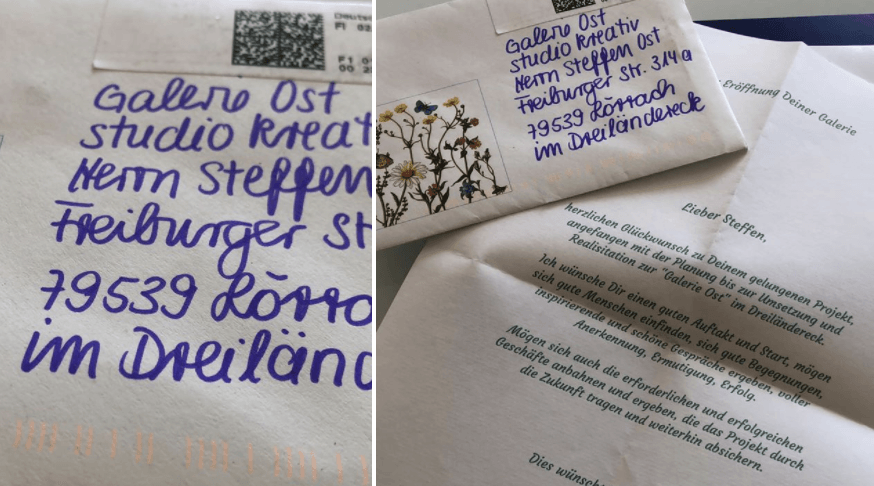 Deutsche
FI 02
F1 0
00 2
Galerie Ost
studio kreat
Herrn Steffen
Freiburger St
79539 Lörrac
im Dreilän
Galerie Ost
studio kreativ
Herrn Steffen Ost
Freiburger Str. 314 a
79539 Lörrach
im Dreiländereck
Eröffnung Deiner Galerie
Lieber Steffen,
herzlichen Glückwunsch zu Deinem gelungenen Projekt,
angefangen mit der Planung bis zur Umsetzung und
Realisitation zur "Galerie Ost" im Dreiländereck.
Ich wünsche Dir einen guten Auftakt und Start, mögen
sich gute Menschen einfinden, sich gute Begegnungen,
inspirierende und schöne Gespräche ergeben, voller
Anerkennung, Ermutigung, Erfolg.
Mögen sich auch die erforderlichen und erfolgreichen
Geschäfte anbahnen und ergeben, die das Projekt durch
die Zukunft tragen und weiterhin absichern.
Dies wünsche